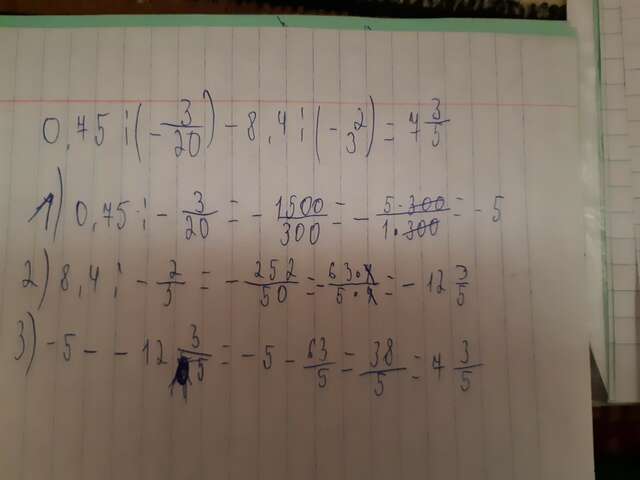 0,75 : (- 3/20) - 8,4 : (- 2/3) = 7 3/5
1) 0,75 : - 3/20 = - 1500/300 = - 5·300/1·300 = - 5
2) 8,4 : - 2/3 = - 252/20 = - 63·4/5·4 = - 12 3/5
3) - 5 - - 12 3/5 = - 5 - 63/5 = 38/5 = 7 3/5